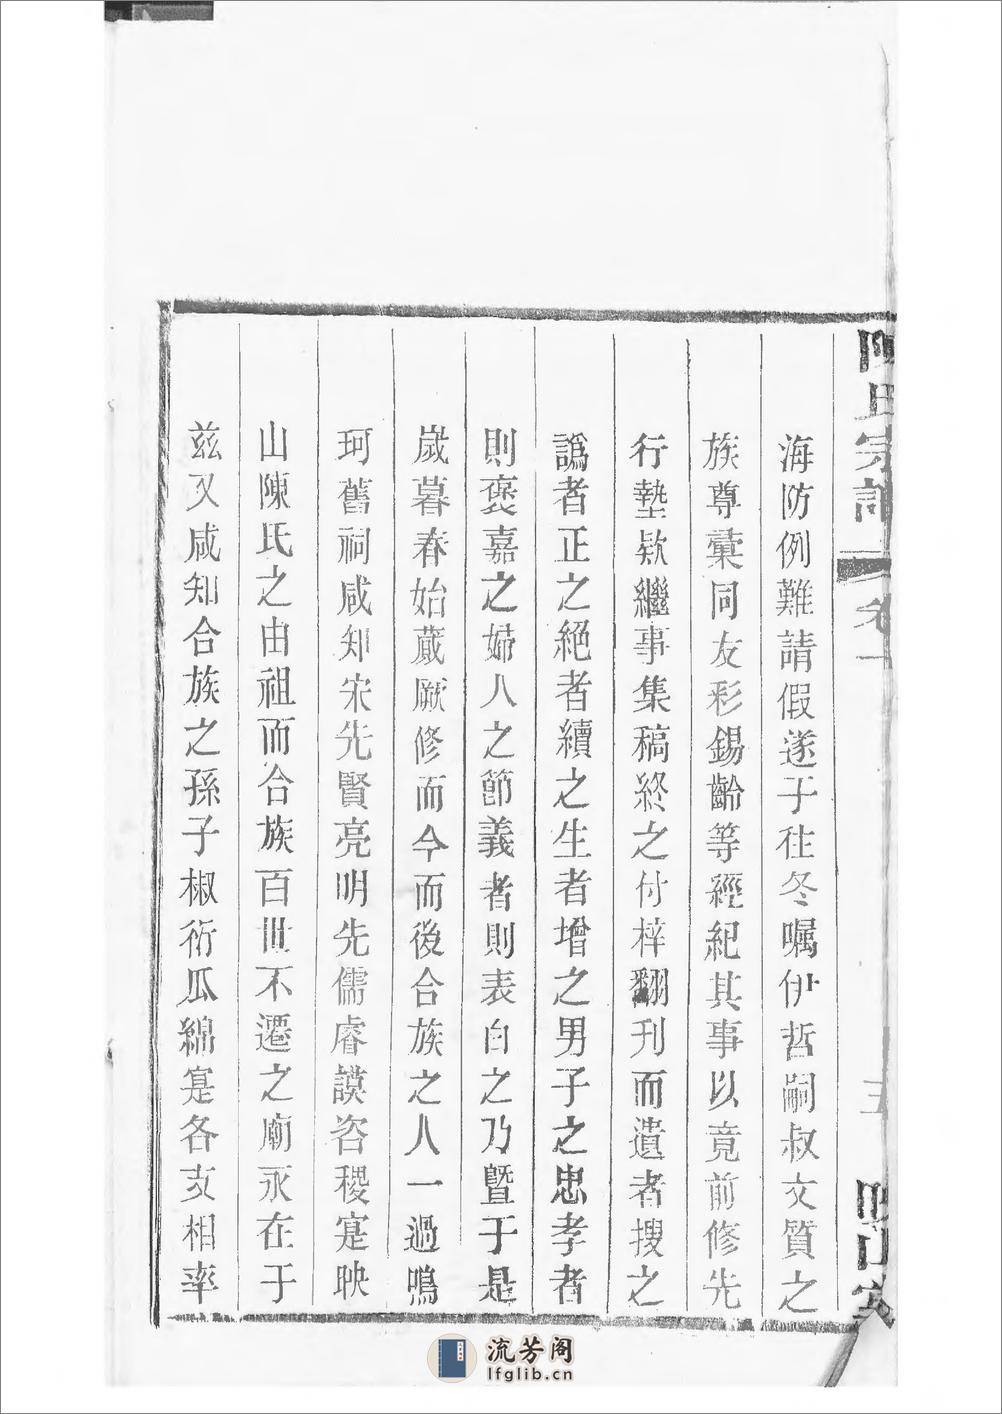 陳氏宗譜
卷一
五
海防例難請假遂于徃冬囑伊哲嗣叔文質之
族尊彚同友彩錫齡等經紀其事以竟前修先
行墊欵繼事集稿終之付梓翻刋而遺者搜之
譌者正之絕者續之生者增之男子之忠孝者
則褒嘉之婦人之節義者則表白之乃曁于是
歲暮春始蕆厥修而今而後合族之人一過鳴
珂舊祠咸知宋先賢亮明先儒睿謨咨稷寔映
山陳氏之由祖而合族百世不遷之廟永在于
兹又咸知合族之孫子椒衍瓜綿寔各支相率
流芳阁
lfglib.cn